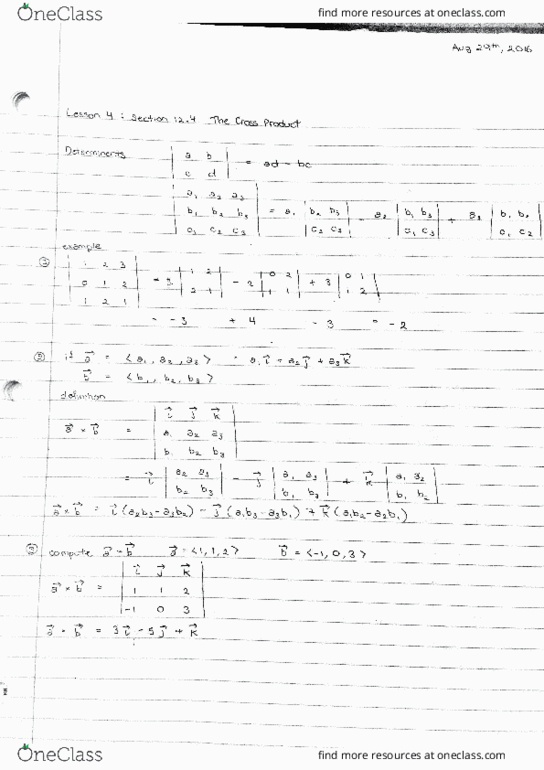 OneClass
find more resources at oneclass.com
Aug 29th, 2016
Lesson 4 : Section 12.4 The Cross Product
Determinants
a b
c d
= ad - bc
a₁ a₂ a₃
b₁ b₂ b₃
c₁ c₂ c₃
= a₁ | b₂ b₃ | - a₂ | b₁ b₃ | + a₃ | b₁ b₂ |
| c₂ c₃ | | c₁ c₃ | | c₁ c₂ |
example
1 2 3
0 1 2
1 2 1
| 1 2 | - 2 | 0 2 | + 3 | 0 1 |
| 2 1 | | 1 1 | | 1 2 |
= -3 + 4 - 3 = -2
if a⃗ = <a₁, a₂, a₃> = a₁i⃗ + a₂j⃗ + a₃k⃗
b⃗ = <b₁, b₂, b₃>
definition
a⃗ × b⃗ =
i⃗ j⃗ k⃗
a₁ a₂ a₃
b₁ b₂ b₃
= i⃗ | a₂ a₃ | - j⃗ | a₁ a₃ | + k⃗ | a₁ a₂ |
| b₂ b₃ | | b₁ b₃ | | b₁ b₂ |
a⃗ × b⃗ = i⃗(a₂b₃-a₃b₂) - j⃗(a₁b₃-a₃b₁) + k⃗(a₁b₂-a₂b₁)
compute a⃗ × b⃗ a⃗ = <1,1,2> b⃗ = <-1,0,3>
a⃗ × b⃗ =
i⃗ j⃗ k⃗
1 1 2
-1 0 3
a⃗ × b⃗ = 3i⃗ - 5j⃗ + k⃗
OneClass
find more resources at oneclass.com